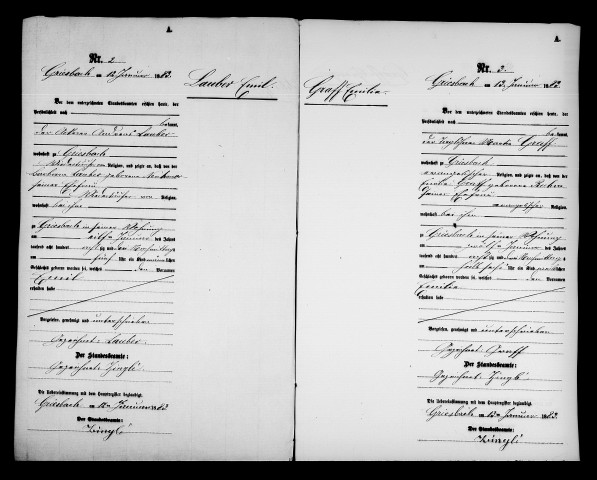 A.
Nr. 2
Griesbach am 12 Januar 1883.
Lauber Emil.
Vor dem unterzeichneten Standesbeamten erschien heute, der
Persönlichkeit nach
kannt,
der Andreas Lauber
wohnhaft zu Griesbach
Religion, und zeigte an, daß von der
Barbara Lauber geborene
seiner Ehefrau
Religion,
wohnhaft bei ihm
zu Griesbach in seiner Wohnung
am elften Januar des Jahres
tausend acht hundert achtzig und drei
um fünf Uhr ein Kind männlichen
Geschlechts geboren worden sei, welches den Vornamen
Emil
erhalten habe
Vorgelesen, genehmigt und unterschrieben
Gezeichnet: Lauber
Der Standesbeamte:
Gezeichnet: Zingle
Die Uebereinstimmung mit dem Hauptregister beglaubigt.
Griesbach am 12ten Januar 1883
Der Standesbeamte
Zinglé
A.
Nr. 3.
Griesbach am 13. Januar 1883.
Graff Emilie.
Vor dem unterzeichneten Standesbeamten erschien heute, der
Persönlichkeit nach
kannt,
der Graff
wohnhaft zu Griesbach
evangelischer Religion, und zeigte an, daß von der
Emilie Graff geborene
seiner Ehefrau
evangelischer Religion,
wohnhaft bei ihm
zu Griesbach in seiner Wohnung
am zwölften Januar des Jahres
tausend acht hundert achtzig und drei
um Uhr ein Kind weiblichen
Geschlechts geboren worden sei, welches den Vornamen
Emilie
erhalten habe
Vorgelesen, genehmigt und unterschrieben
Gezeichnet: Graff
Der Standesbeamte:
Gezeichnet: Zingle
Die Uebereinstimmung mit dem Hauptregister beglaubigt.
Griesbach am 13ten Januar 1883.
Der Standesbeamte:
Zinglé